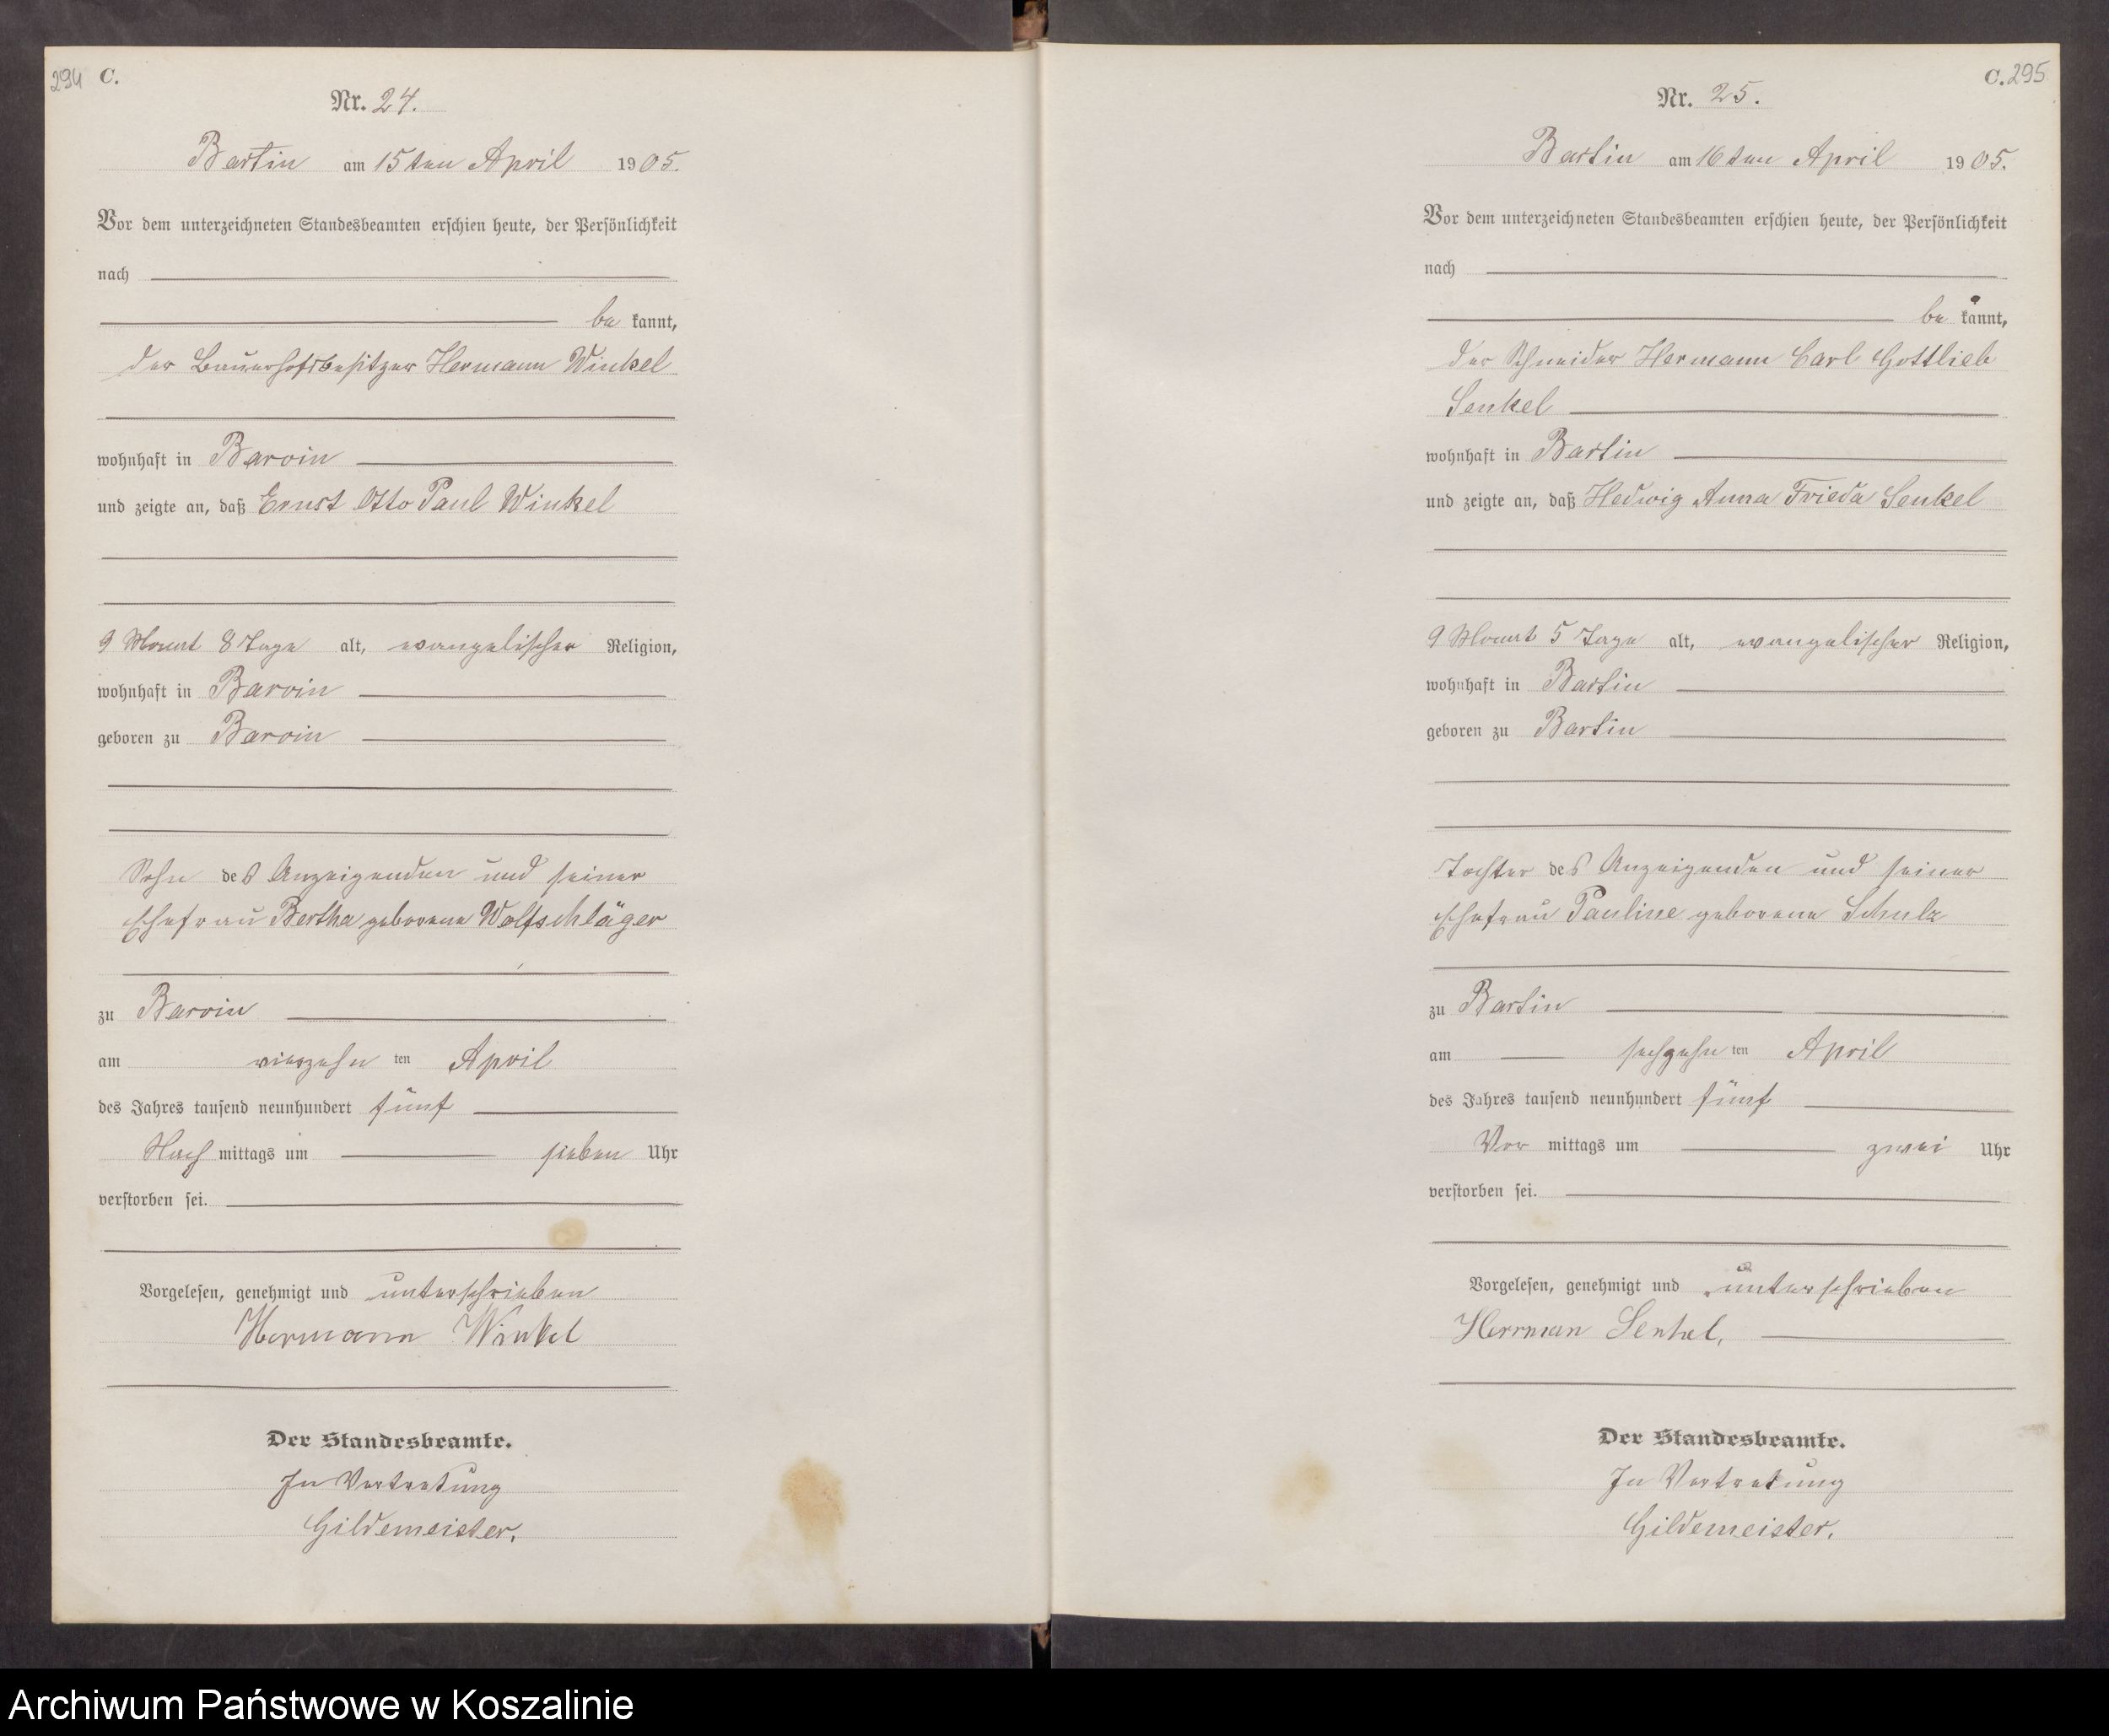 294 C.
Nr. 24.
Bartin am 15ten April 1905.
Vor dem unterzeichneten Standesbeamten erschien heute, der Persönlichkeit
nach
be kannt,
der Bauerhofsbesitzer Hermann Winkel
wohnhaft in Barvin
und zeigte an, daß Ernst Otto Paul Winkel
9 Monat 8 Tage alt, evangelischer Religion,
wohnhaft in Barvin
geboren zu Barvin
Sohn des Anzeigenden und seiner
Ehefrau Bertha geborene Wolfschläger
zu Barvin
am vierzehn ten April
des Jahres tausend neunhundert fünf
Nach mittags um sieben Uhr
verstorben sei.
Vorgelesen, genehmigt und unterschrieben
Hermann Winkel
Der Standesbeamte.
In Vertretung
Gildemeister.
C. 295
Nr. 25.
Bartin am 16ten April 1905.
Vor dem unterzeichneten Standesbeamten erschien heute, der Persönlichkeit
nach
be kannt,
der Schneider Hermann Carl Gottlieb
Senkel
wohnhaft in Bartin
und zeigte an, daß Hedwig Anna Frieda Senkel
9 Monat 5 Tage alt, evangelischer Religion,
wohnhaft in Bartin
geboren zu Bartin
Tochter des Anzeigenden und seiner
Ehefrau Pauline geborene Schulz
zu Bartin
am sechzehn ten April
des Jahres tausend neunhundert fünf
Vor mittags um zwei Uhr
verstorben sei.
Vorgelesen, genehmigt und unterschrieben
Herrman Senkel,
Der Standesbeamte.
In Vertretung
Gildemeister.
Archiwum Państwowe w Koszalinie